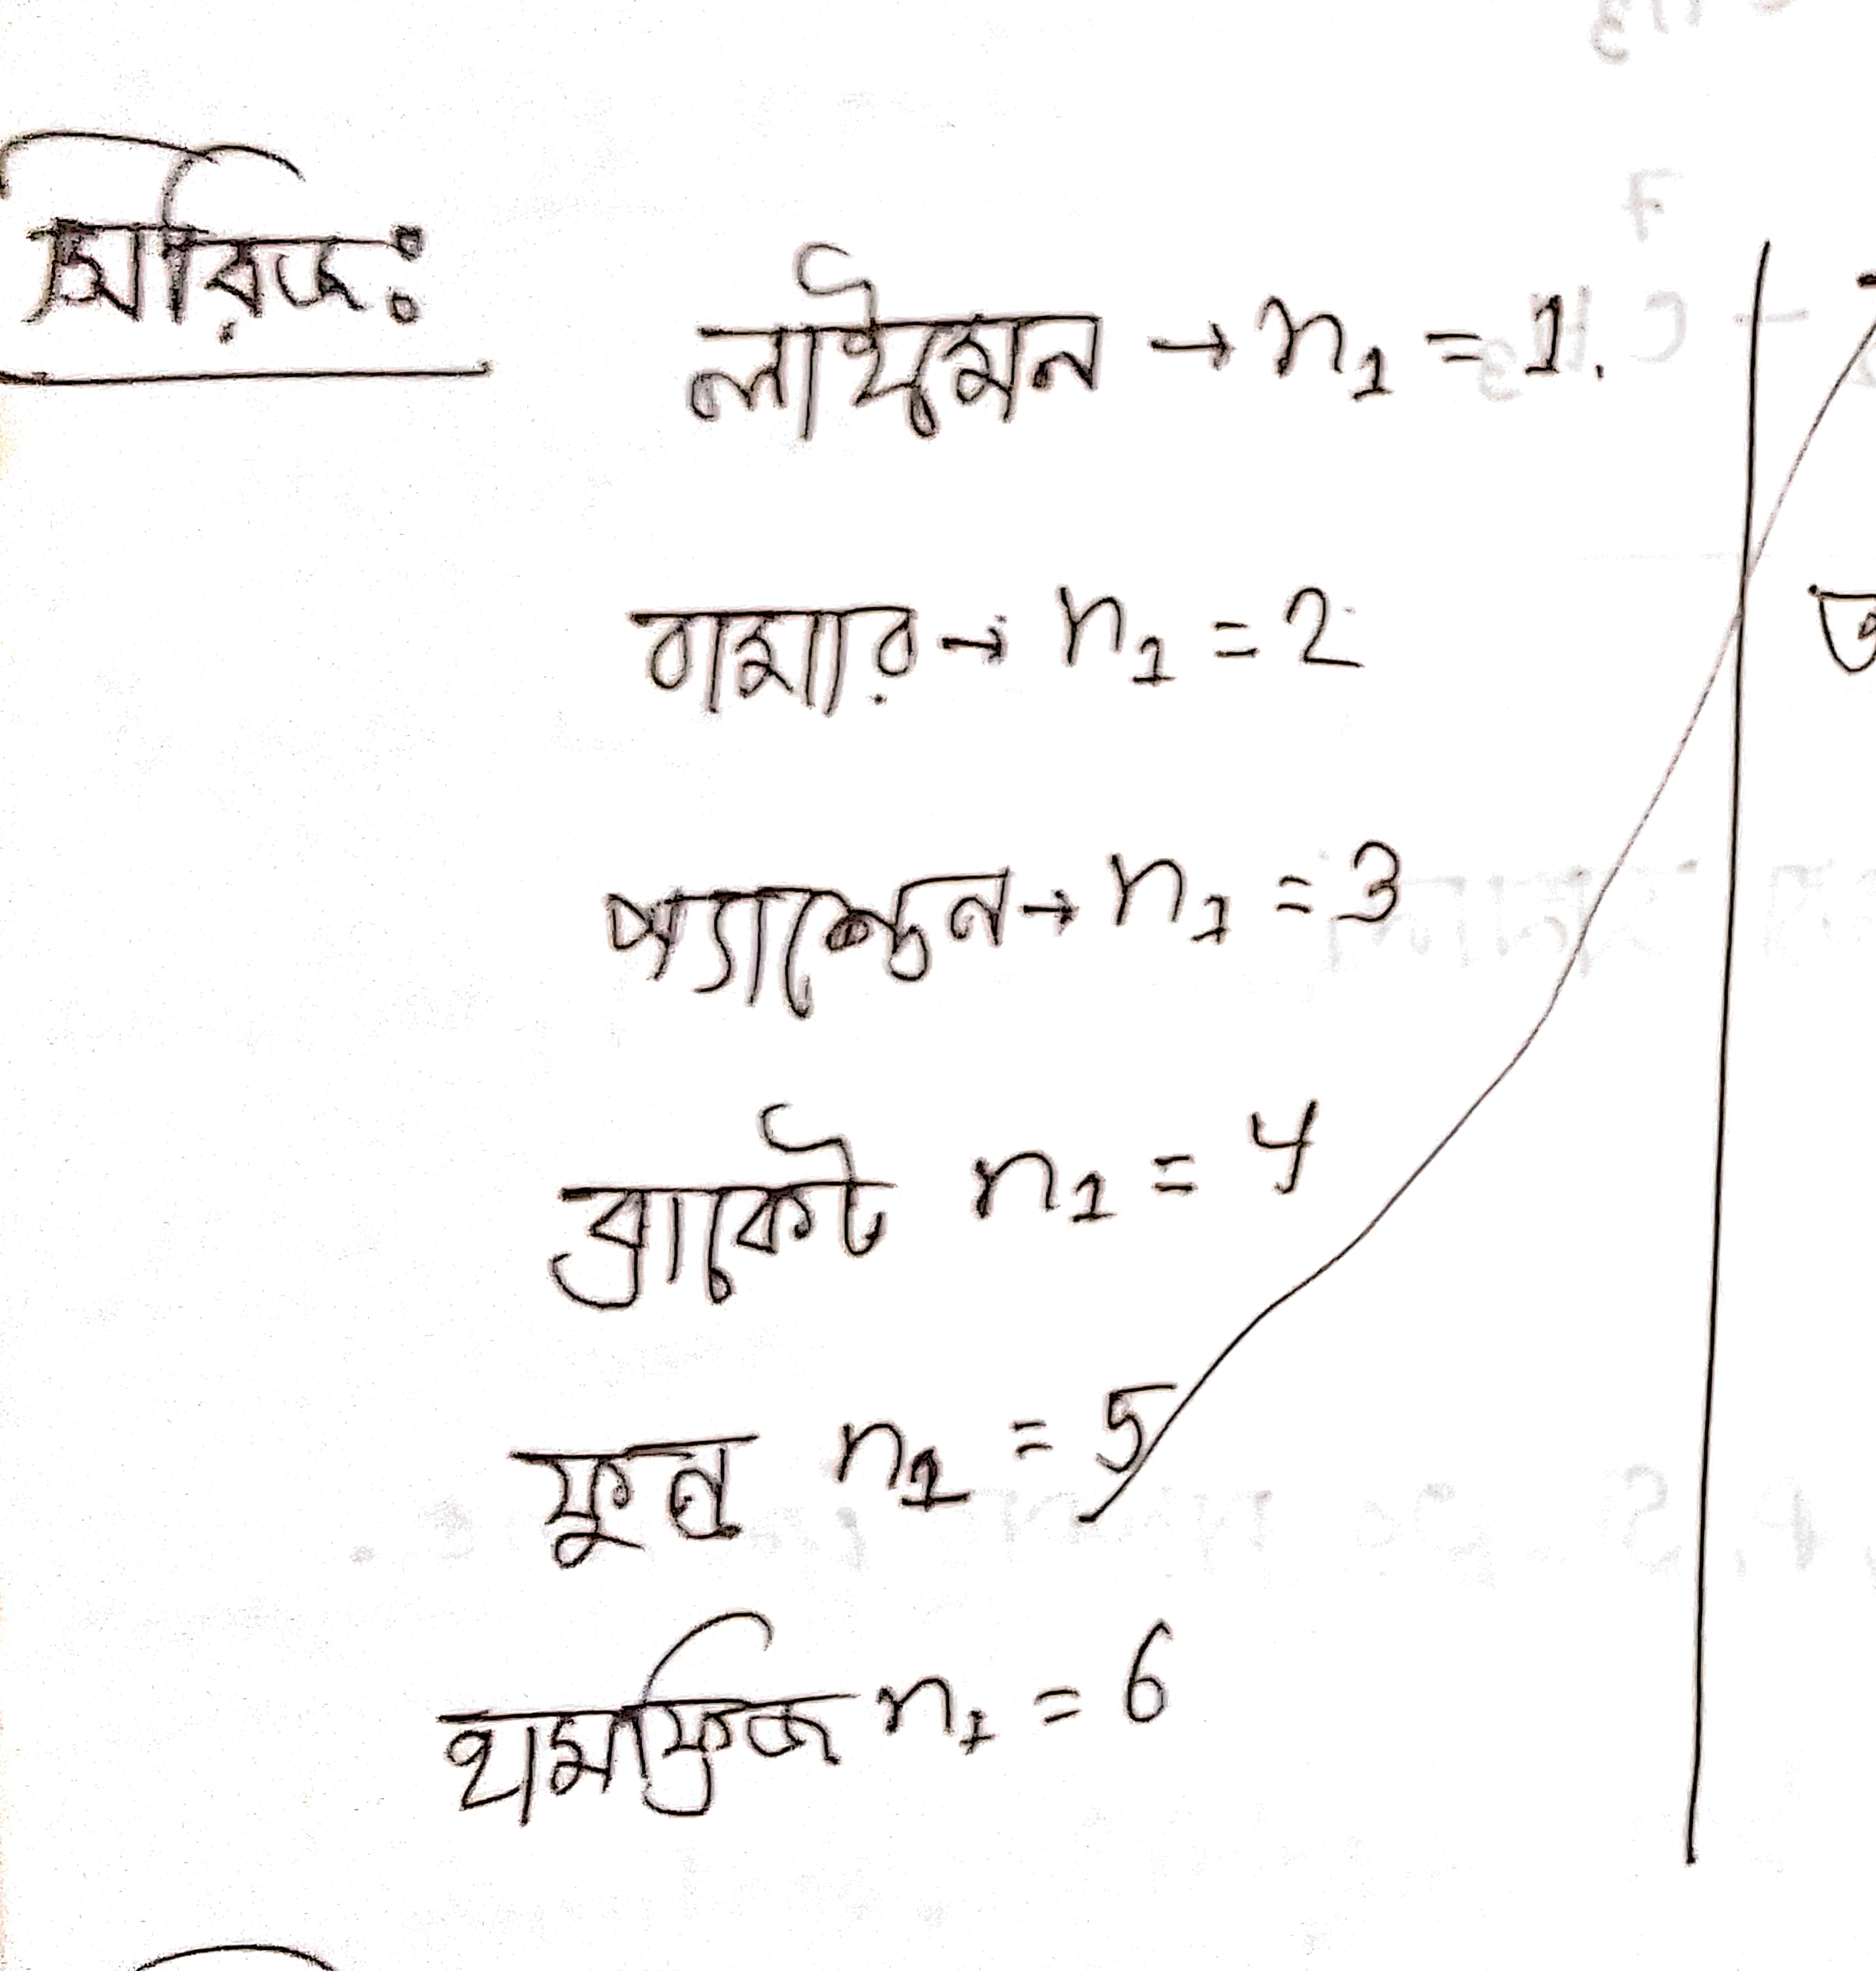 সিরিজঃ
লাইম্যান → n₁ = 1.
বামার → n₁ = 2
প্যাশ্চেন → n₁ = 3
ব্রাকেট n₁ = 4
ফুন্ড n₁ = 5
n₁ = 6